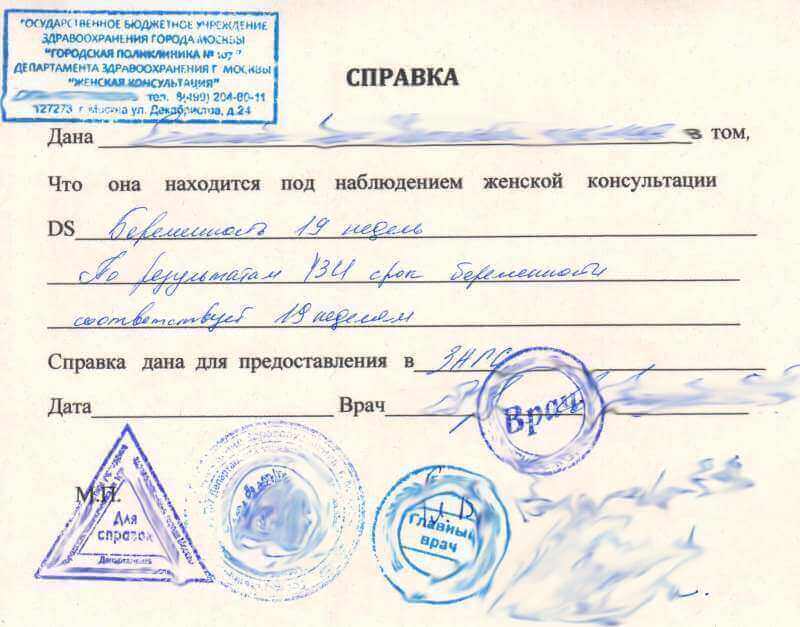 ГОСУДАРСТВЕННОЕ БЮДЖЕТНОЕ УЧРЕЖДЕНИЕ
ЗДРАВООХРАНЕНИЯ ГОРОДА МОСКВЫ
"ГОРОДСКАЯ ПОЛИКЛИНИКА № 107"
ДЕПАРТАМЕНТА ЗДРАВООХРАНЕНИЯ Г МОСКВЫ
"ЖЕНСКАЯ КОНСУЛЬТАЦИЯ"
тел. 8(499) 204-80-11
127273 г Москва ул. Декабристов, д.24
СПРАВКА
Дана в том,
Что она находится под наблюдением женской консультации
DS Беременность 19 недель
По результатам УЗИ срок беременности
соответствует 19 неделям
Справка дана для предоставления в ЗАГС
Дата Врач
Врач
М.П.
Для
справок
Главный
врач